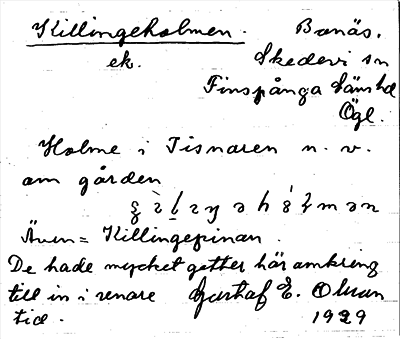 Killingeholmen. Bonäs.
ek. Skedevi sn
Finspånga länshd
Ögl.
Holme i Tisnaren n. v.
om gården
Även = Killingepinan.
De hade mycket getter här omkring
till in i senare Gustaf E. Olsson
tid. 1929